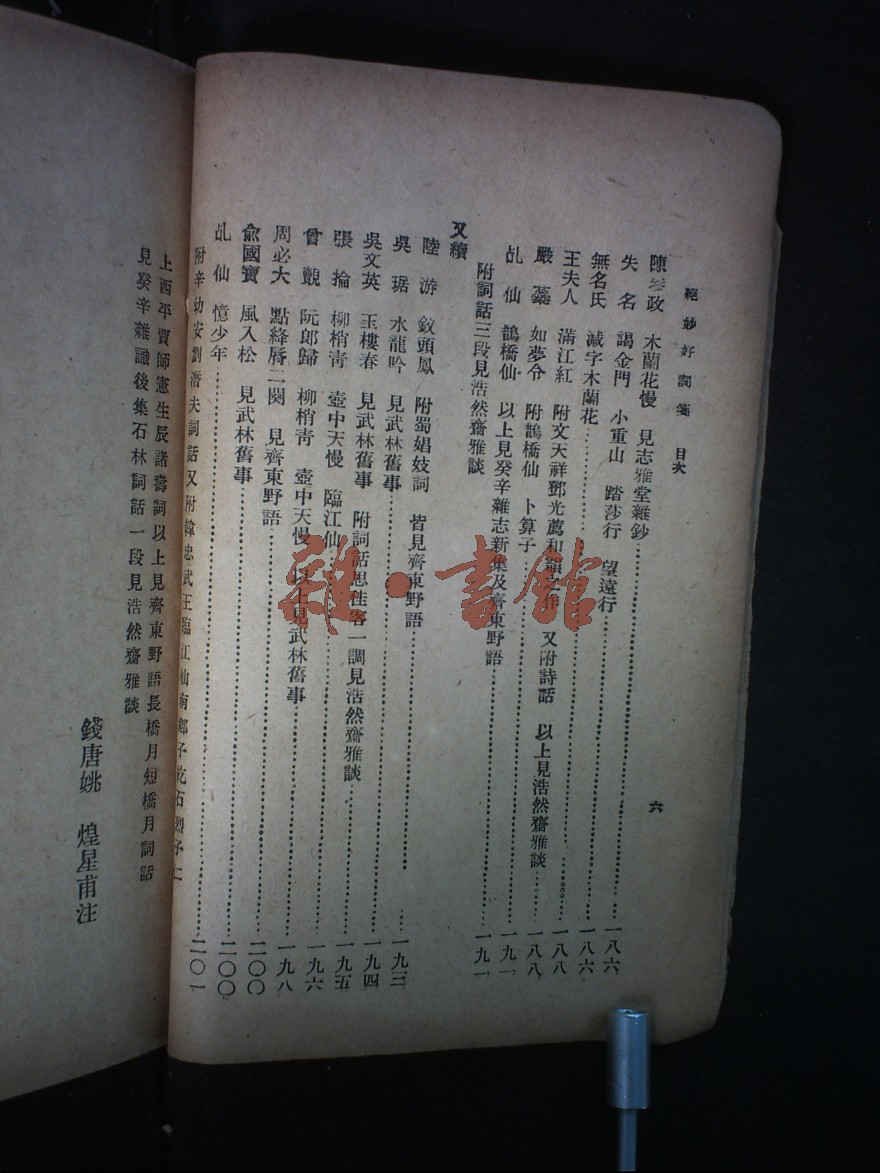 絕妙好詞箋 目次 六
陳參政 木蘭花慢 見志雅堂雜鈔
失名 謁金門 小重山 踏莎行 望遠行 一八六
無名氏 減字木蘭花 一八六
王夫人 滿江紅 附文天祥鄧光薦和韻之作 又附詩話 一八八
嚴蘂 如夢令 附鵲橋仙 卜算子 以上見浩然齋雅談 一八八
乩仙 鵲橋仙 以上見癸辛雜志新集及齊東野語 一九一
附詞話三段見浩然齋雅談 一九一
又續
陸游 釵頭鳳 附蜀娼妓詞 皆見齊東野語
吳琚 水龍吟 見武林舊事 一九三
吳文英 玉樓春 見武林舊事 附詞話思佳客一調見浩然齋雅談 一九四
張掄 柳梢靑 壺中天慢 臨江仙 一九五
曾覿 阮郎歸 柳梢靑 壺中天慢 以上見武林舊事 一九六
周必大 點絳唇二闋 見齊東野語 一九八
兪國寶 風入松 見武林舊事 二〇〇
乩仙 憶少年 二〇〇
附辛幼安劉潛夫詞話又附韓忠武王臨江仙南鄉子乾石烈子仁 二〇一
上西平賈師憲生辰諸壽詞以上見齊東野語長橋月短橋月詞話
見癸辛雜識後集石林詞話一段見浩然齋雅談
錢唐姚 煌星甫注
雜·書館